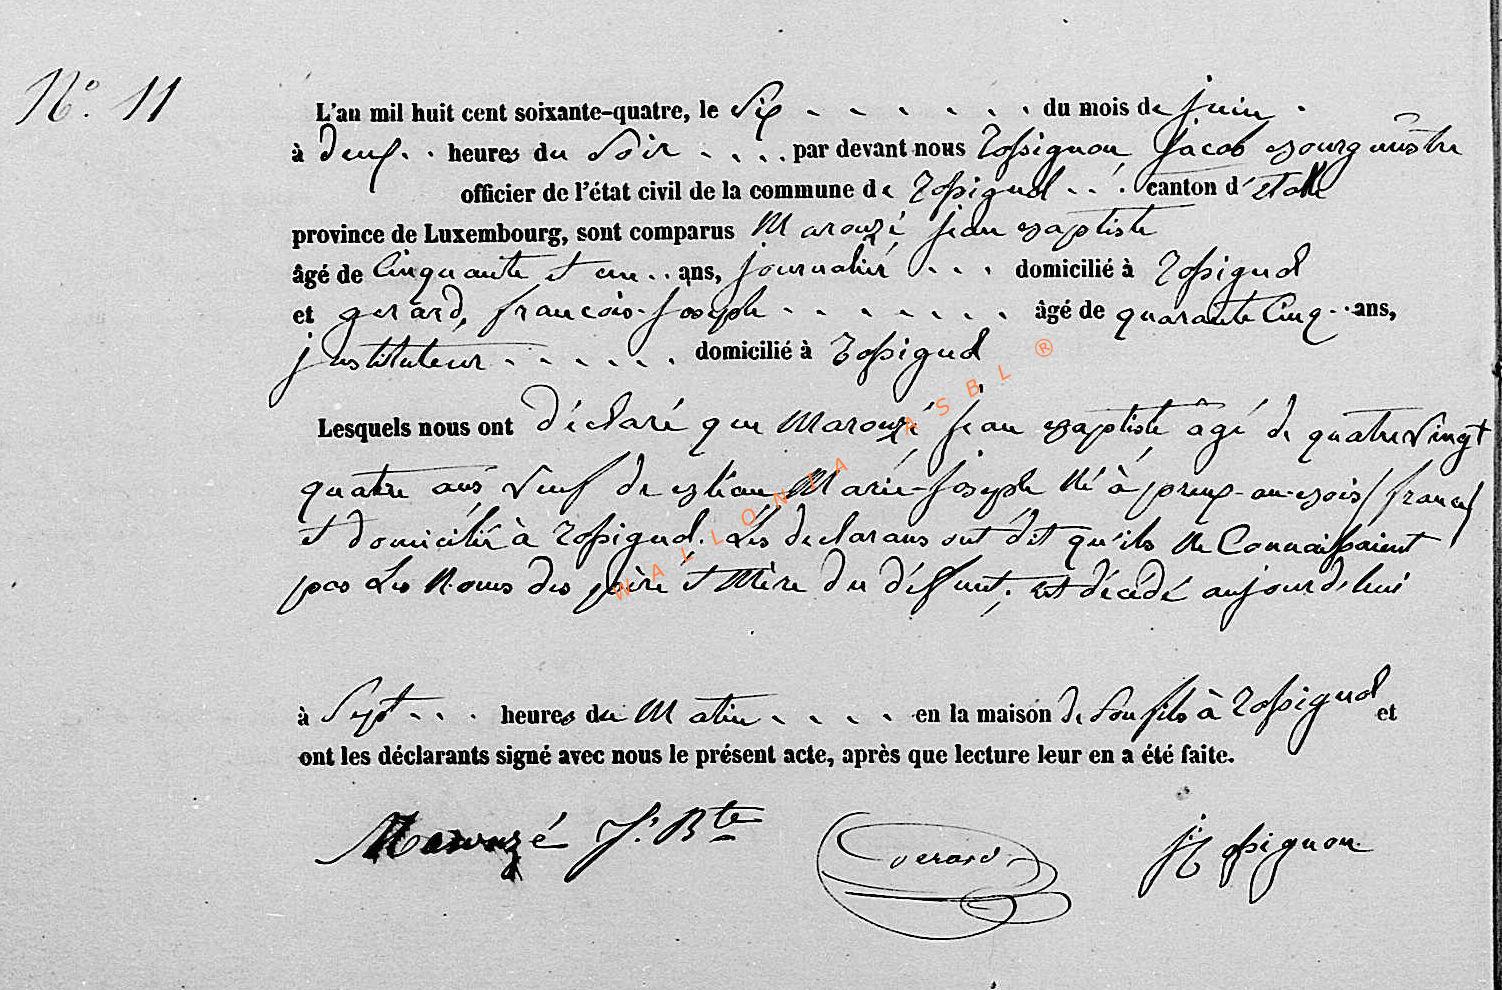 N.° 11
L'an mil huit cent soixante-quatre, le Six du mois de juin
à deux heures du Soir par devant nous Rossignon Jacob Bourgmestre
officier de l'état civil de la commune de Rossignol canton d'étalle
province de Luxembourg, sont comparus Marouzé jean Baptiste
âgé de Cinquante et un ans, journalier domicilié à Rossignol
et gerard, françois-Joseph âgé de quarante Cinq ans,
instituteur domicilié à Rossignol
Lesquels nous ont déclaré que Marouzé jean Baptiste âgé de quatre Vingt
quatre ans Veuf de Marie-Joseph Né à preux-au-Bois (france)
et domicilié à Rossignol. Les declarans ont dit qu'ils Ne Connaissaient
pas Les Noms des père et Mère du déffunt, est décédé aujourd'hui
à Sept heures du Matin en la maison de Son fils à Rossignol et
ont les déclarants signé avec nous le présent acte, après que lecture leur en a été faite.
Marouzé J. Bte Gerard J Rossignon
WALLONIA ASBL ®